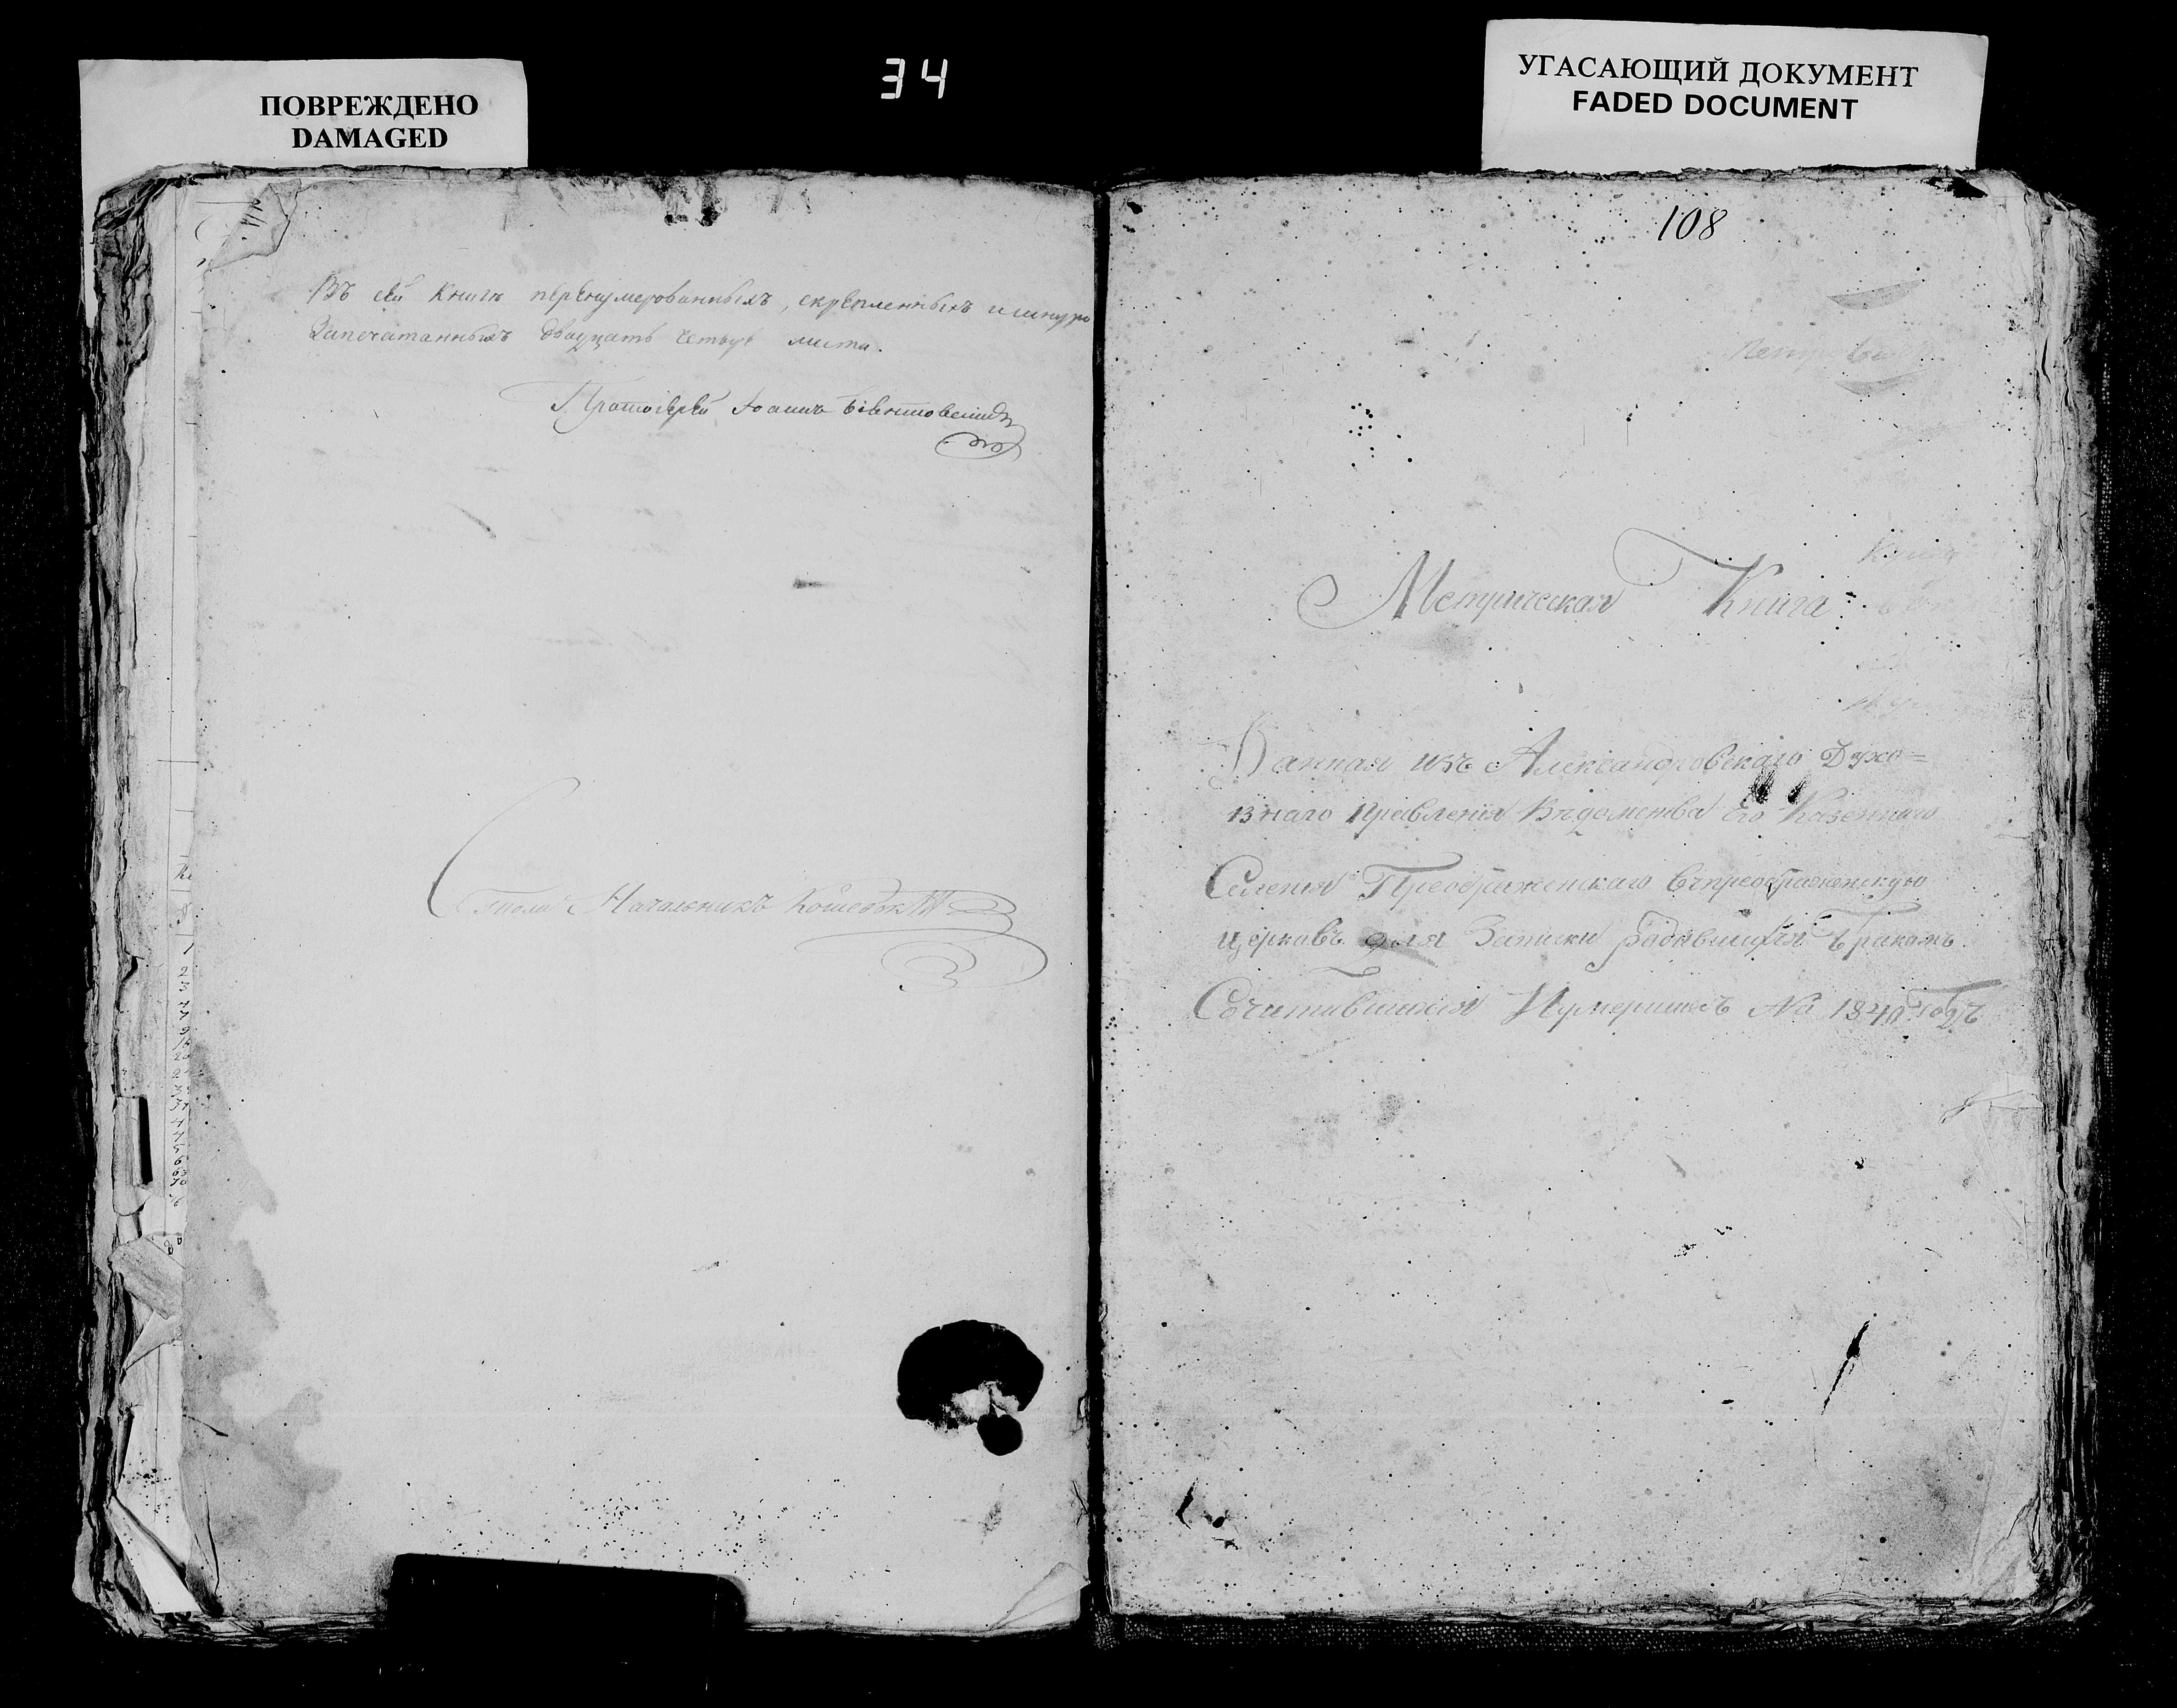 ПОВРЕЖДЕНО
DAMAGED
34
УГАСАЮЩИЙ ДОКУМЕНТ
FADED DOCUMENT
Въ сей Книгѣ перенумерованныхъ, скрепленныхъ и шнуро
Запечатанныхъ двадцать четыре листа.
Протоіерей Іоаннъ
Стола Начальникъ
108
Метрическая Книга
Данная изъ Александровскаго Духо=
внаго Правленія Вѣдомства Его Казеннаго
Селенія Преображенскаго въ преображенскую
церковь для Записки родившихся Бракомъ
Сочитавшихся И умершихъ На 1840 годъ